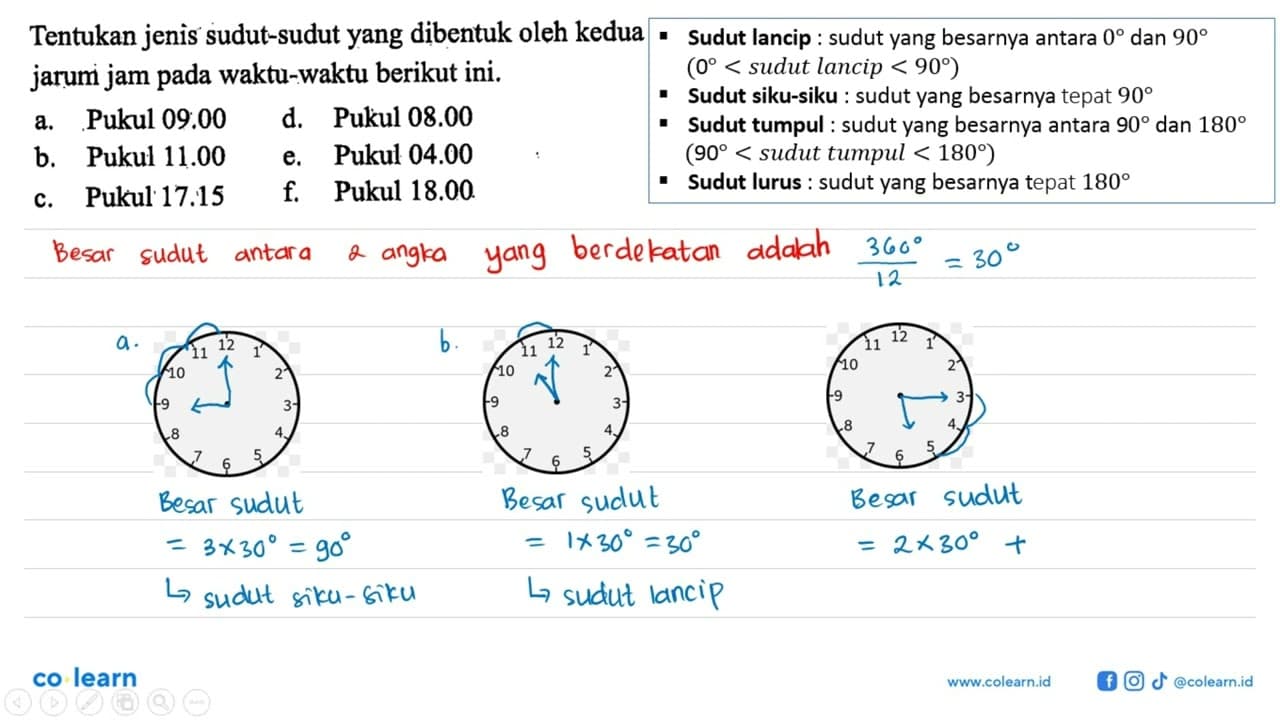 Tentukan jenis sudut-sudut yang dibentuk oleh kedua
jarum jam pada waktu-waktu berikut ini.
a. Pukul 09.00 d. Pukul 08.00
b. Pukul 11.00 e. Pukul 04.00
c. Pukul 17.15 f. Pukul 18.00
▪ Sudut lancip : sudut yang besarnya antara 0° dan 90°
(0° < sudut lancip < 90°)
▪ Sudut siku-siku : sudut yang besarnya tepat 90°
▪ Sudut tumpul : sudut yang besarnya antara 90° dan 180°
(90° < sudut tumpul < 180°)
▪ Sudut lurus : sudut yang besarnya tepat 180°
Besar sudut antara 2 angka yang berdekatan adalah 360°/12 = 30°
a.
12
1
2
3
4
5
6
7
8
9
10
11
Besar sudut
= 3 × 30° = 90°
↳ sudut siku-siku
b.
12
1
2
3
4
5
6
7
8
9
10
11
Besar sudut
= 1 × 30° = 30°
↳ sudut lancip
12
1
2
3
4
5
6
7
8
9
10
11
Besar sudut
= 2 × 30° +
co learn
www.colearn.id
@colearn.id